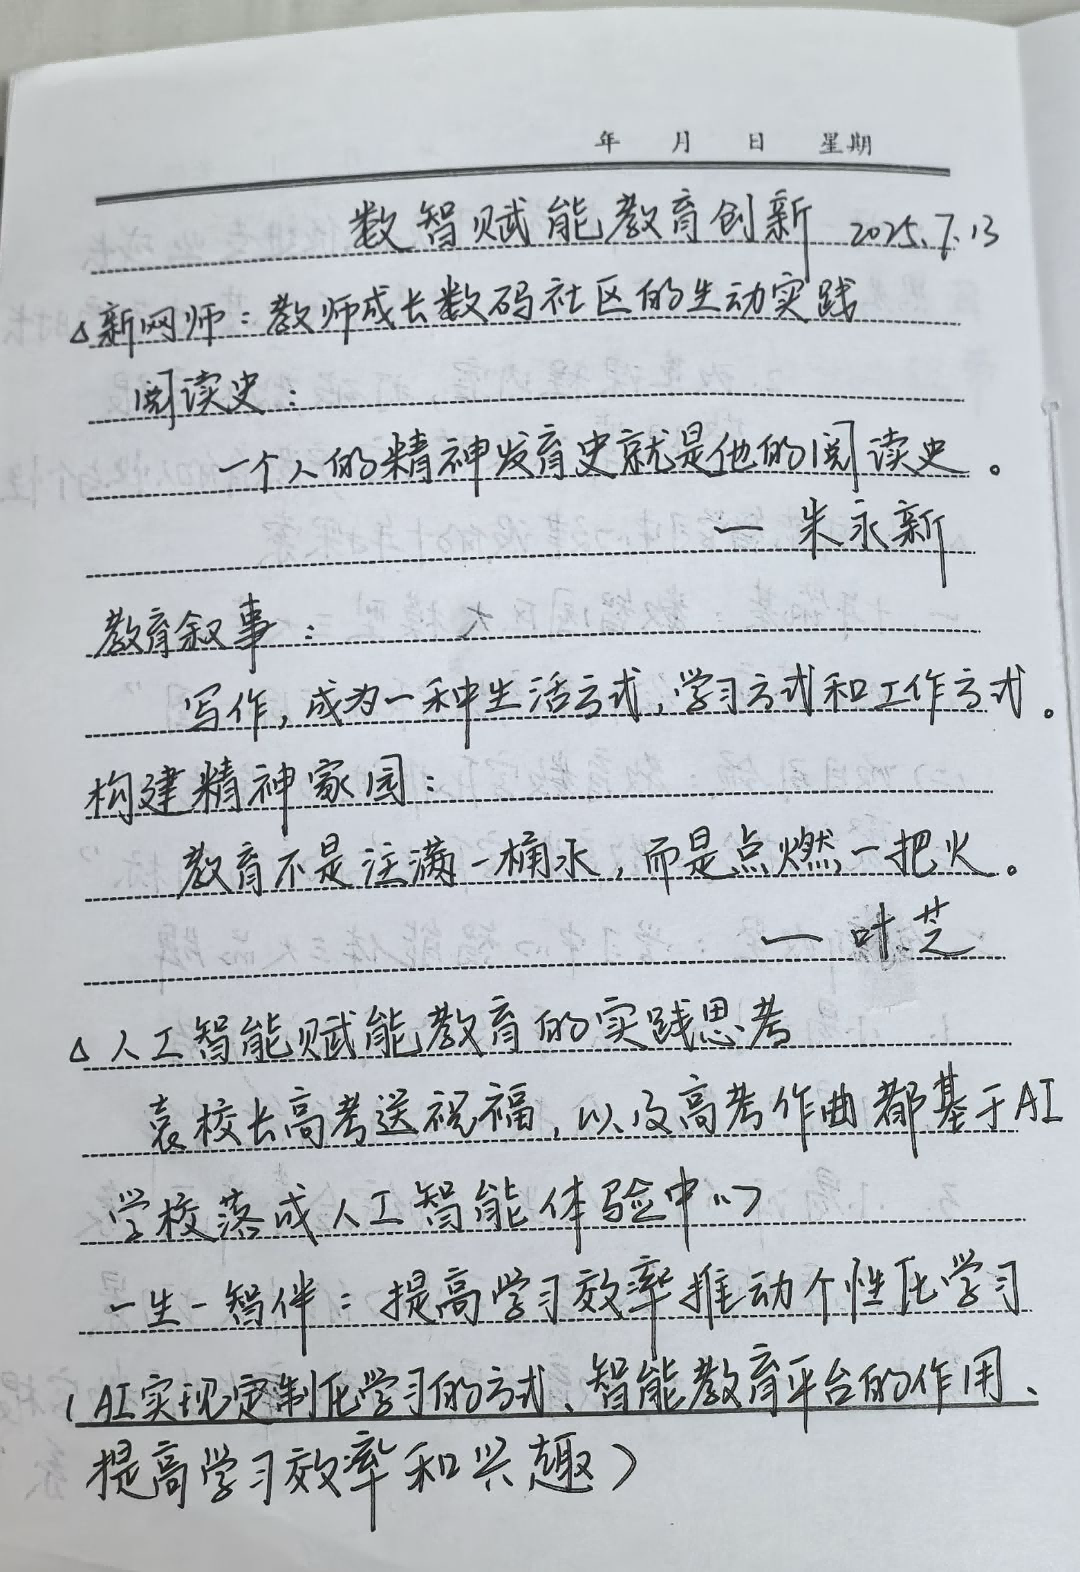 年 月 日 星期
数智赋能教育创新 2025.7.13
△新网师：教师成长数码社区的生动实践
阅读史：
一个人的精神发育史就是他的阅读史。
— 朱永新
教育叙事：
写作，成为一种生活方式，学习方式和工作方式。
构建精神家园：
教育不是注满一桶水，而是点燃一把火。
— 叶芝
△人工智能赋能教育的实践思考
袁校长高考送祝福，以及高考作曲都基于AI
学校落成人工智能体验中心
一生一智伴：提高学习效率推动个性化学习
（AI实现定制化学习的方式、智能教育平台的作用、
提高学习效率和兴趣）